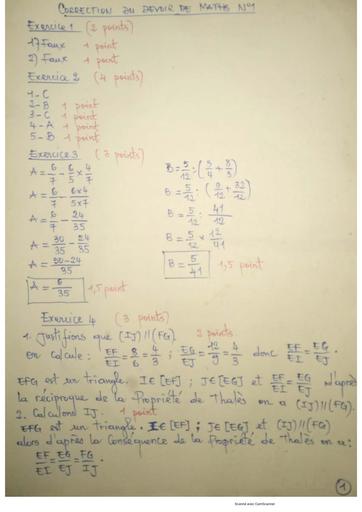 CORRECTION DU DEVOIR DE MATHS N°1
Exercice 1 (2 points)
1) Faux 1 point
2) Faux 1 point
Exercice 2 (4 points)
1 - C
2 - B 1 point
3 - C 1 point
4 - A 1 point
5 - B 1 point
Exercice 3 (3 points)
A = 6/7 - 6/5 × 4/7
A = 6/7 - 6×4/5×7
A = 6/7 - 24/35
A = 30/35 - 24/35
A = 30-24/35
A = 6/35 1,5 point
B = 5/12 : (3/4 + 8/3)
B = 5/12 : (9/12 + 32/12)
B = 5/12 : 41/12
B = 5/12 × 12/41
B = 5/41 1,5 point
Exercice 4 (3 points)
1. Justifions que (IJ)//(FG). 2 points
On calcule : EF/EI = 8/6 = 4/3 ; EG/EJ = 12/9 = 4/3 donc EF/EI = EG/EJ.
EFG est un triangle. I∈[EF] ; J∈[EG] et EF/EI = EG/EJ d'après
la réciproque de la Propriété de Thalès on a (IJ)//(FG).
2. Calculons IJ. 1 point
EFG est un triangle. I∈[EF] ; J∈[EG] et (IJ)//(FG)
alors d'après la Conséquence de la Propriété de Thalès on a :
EF/EI = EG/EJ = FG/IJ.
1
Scanné avec CamScanner